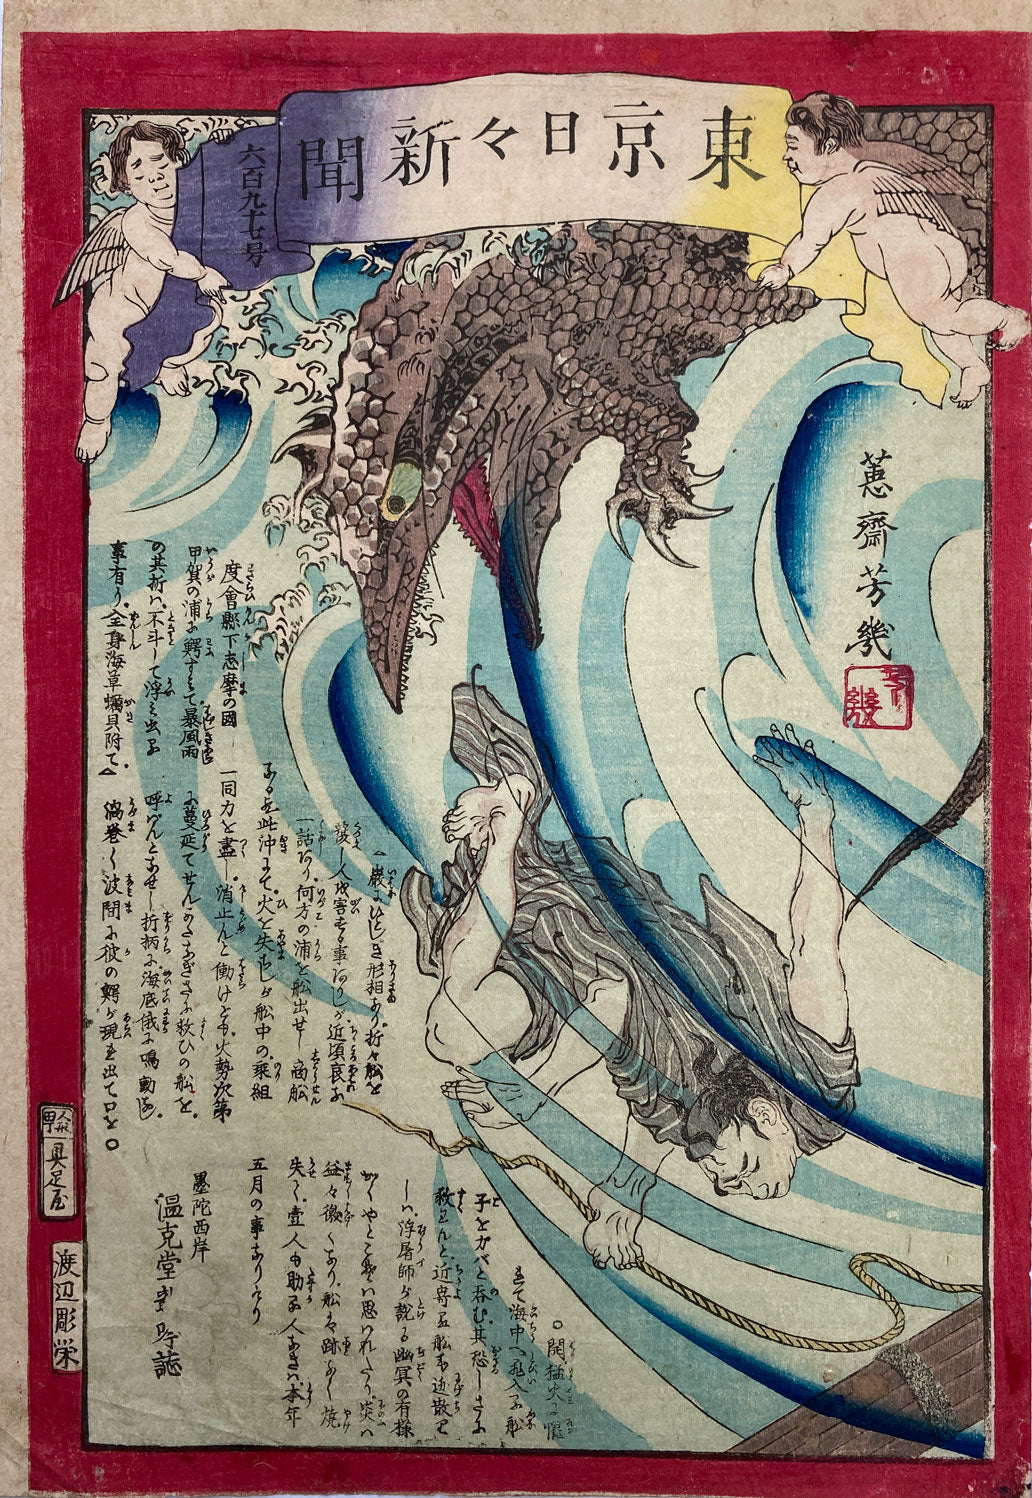 東京日々新聞
六百九十七号
蕙齋芳幾
芳幾
度會縣下志摩の國
甲賀の浦に鰐すみて暴風雨
の其折ハ不斗して浮み出る
事有り全身海草蠣貝附て△
△巌にひとしき形相あり折々船を
覆し人を害する事ありしが近頃哀な
一話あり何方の浦を船出せし商船
なる 此沖にて火を失せしが船中の乗組
一同力を盡し消止んと働けども火勢次第
に蔓延てせんかたなぎさに救ひの船を
呼ばんとなせし折柄に海底俄に鳴動なし
渦巻く波間に彼の鰐が現れ出て口を○
○開猛火に懼
れて海中へ飛入る船
子をカバと呑む其恐しさに
救はんと近寄る船も逃散
しハ浮屠師が説る幽冥の有様
かくやとこそハ思はれたり炎ハ
益々微くなり船も跡なく焼
失て壹人も助る人なきハ本年
五月の事なりけり
墨陀西岸
温克堂龍吟誌
人形町
具足屋
渡辺彫栄